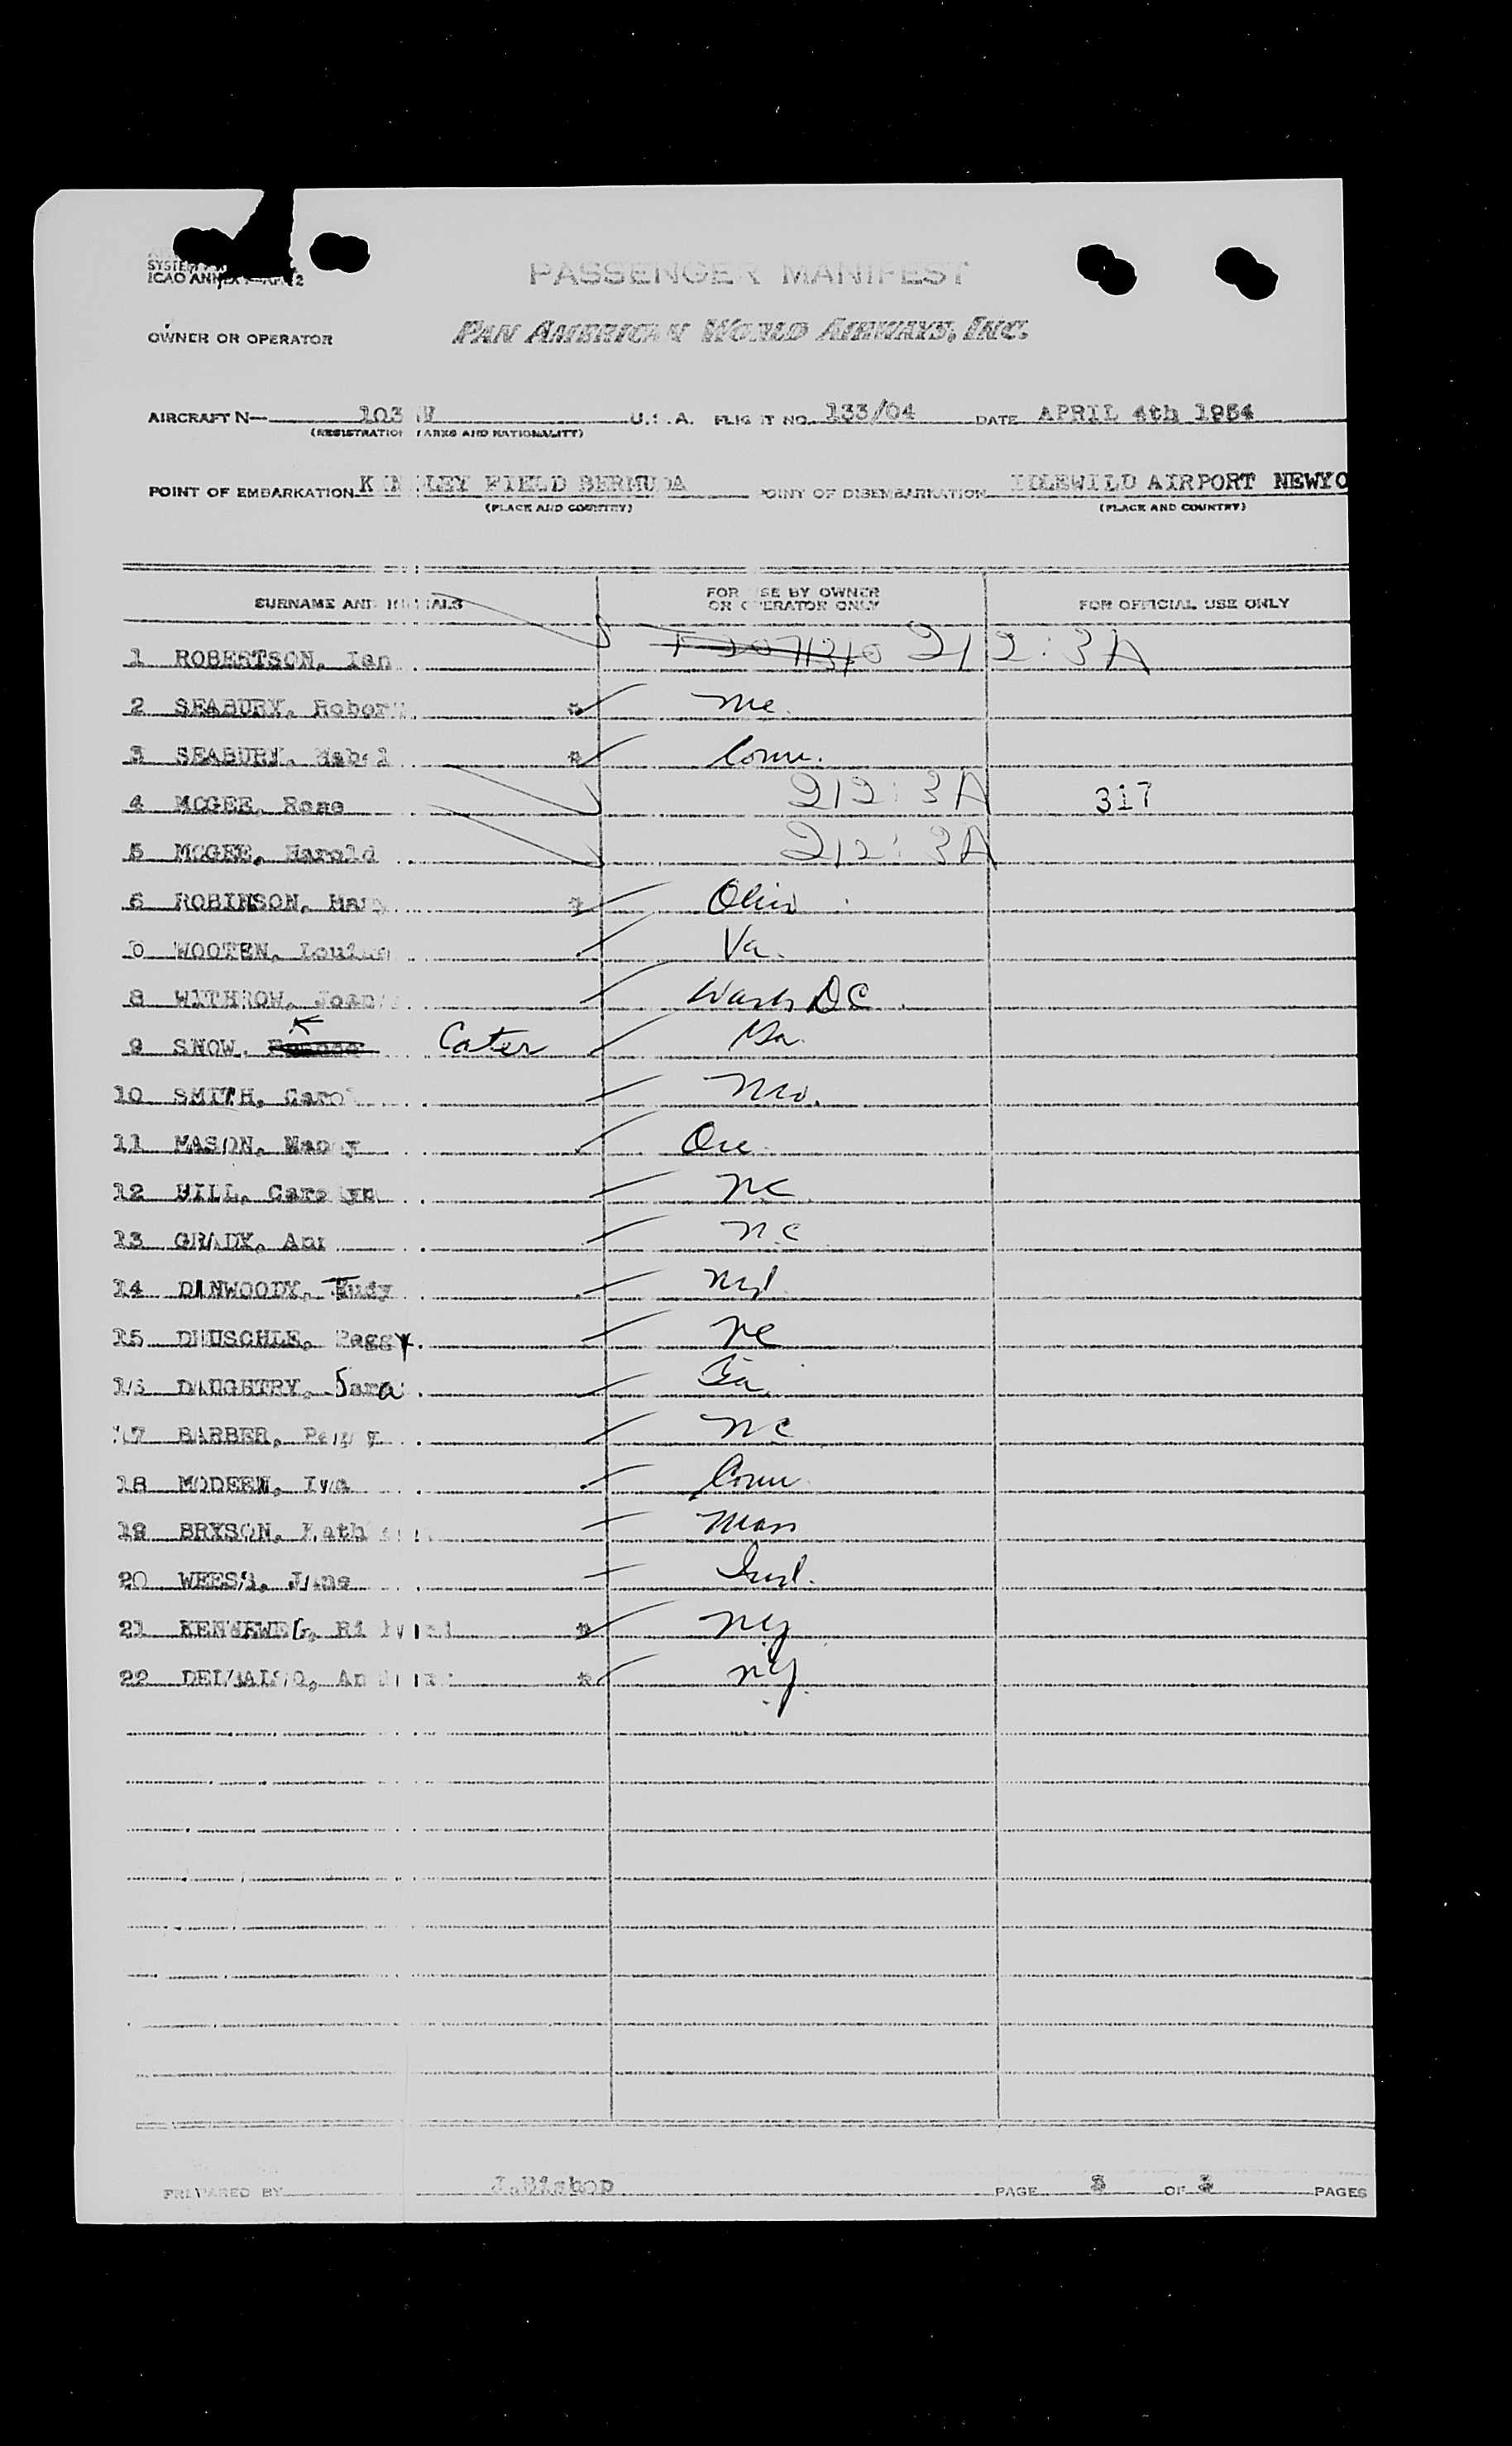 PASSENGER MANIFEST
ICAO ANNEX
OWNER OR OPERATOR PAN AMERICAN WORLD AIRWAYS, INC.
AIRCRAFT N— 103 U.S.A. FLIGHT NO. 133/04 DATE APRIL 4th 1954
(REGISTRATION MARKS AND NATIONALITY)
POINT OF EMBARKATION KINDLEY FIELD BERMUDA POINT OF DISEMBARKATION IDLEWILD AIRPORT NEWYO
(PLACE AND COUNTRY) (PLACE AND COUNTRY)
SURNAME AND INITIALS FOR USE BY OWNER OR OPERATOR ONLY FOR OFFICIAL USE ONLY
1 ROBERTSON, Ian 212:3A
2 SEABURY, Robert * Me.
3 SEABURY, Mabel * Conn.
4 MCGEE, Rose 212:3A 317
5 MCGEE, Harold 212:3A
6 ROBINSON, Mary * Ohio
WOOTEN, Louise Va.
8 WITHROW, Joan Wash DC
9 SNOW, Cater
10 SMITH, Carol Mo.
11 MASON, Nancy Ore.
12 HILL, Carolyn NC
13 GRADY, Ann N.C
14 DINWOODY, Judy Md.
15 Peggy. NC
16 DAUGHTRY, Sara Ga.
17 BARBER, Peggy NC
18 MODEEN, Iva Conn
19 BRYSON, Kath Mass
20 Jane Ind.
21 * NY
22 * NY
PREPARED BY J.Bishop PAGE 3 OF 3 PAGES